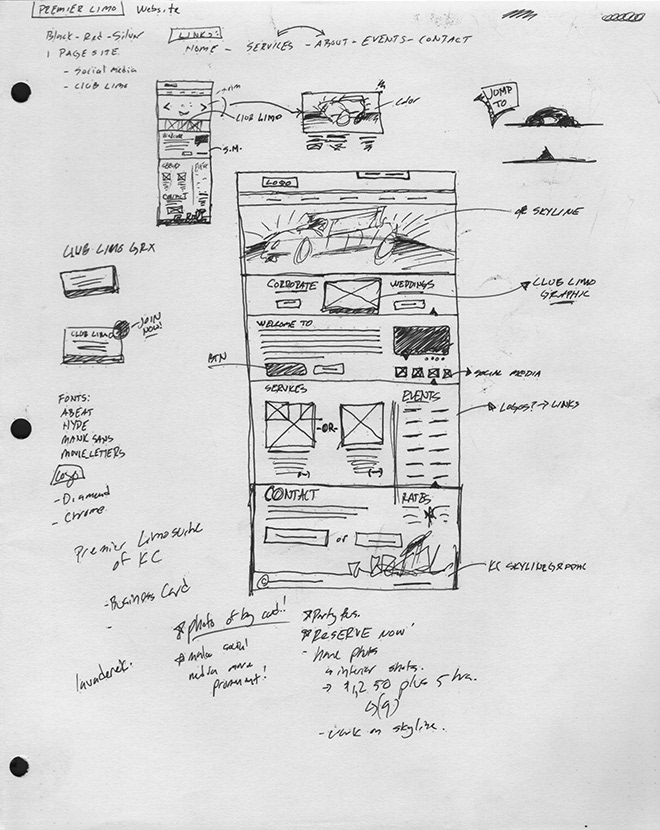 PREMIER LIMO Website
Black-Red-Silver
1 PAGE SITE
- Social Media
- CLUB LIMO
LINKS:
HOME - SERVICES - ABOUT - EVENTS - CONTACT
CLUB LIMO
S.M.
Color
JUMP TO
LOGO
OR SKYLINE
CORPORATE
WEDDINGS
CLUB LIMO GRAPHIC
WELCOME TO
BTN
SOCIAL MEDIA
SERVICES
-OR-
EVENTS
LOGOS? → LINKS
CONTACT
or
RATES
KC SKYLINE
CLUB LIMO GRX
CLUB LIMO
JOIN NOW!
FONTS:
ABEAT
HYDE
MANK SANS
MOVIE LETTERS
Logo
- Diamond
- Chrome
Premier Limosuine
of KC
- Business Card
photo of big card!
make social
media more
prominent!
Party bus.
RESERVE NOW!
- have photos
interior shots.
plus 5 hrs.
- work on skyline.